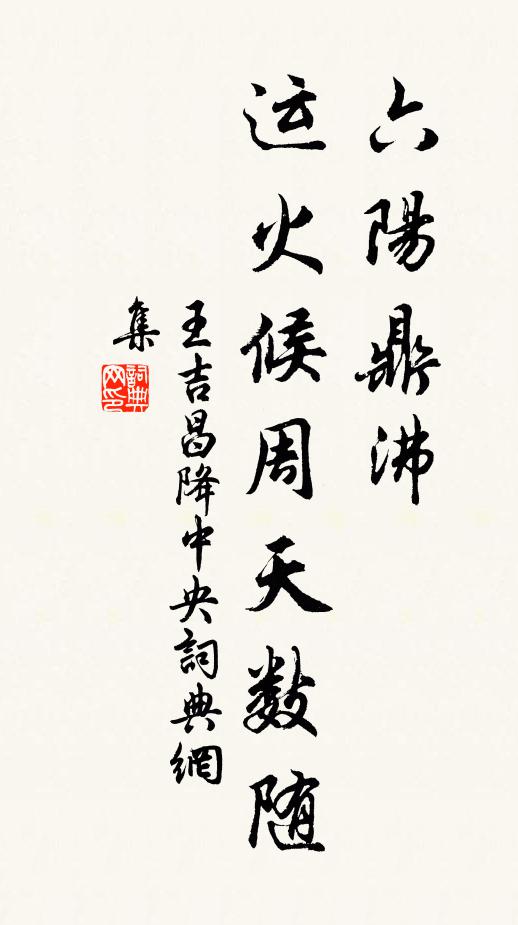 六陽鼎沸
运火候周天数随
王吉昌降中央詞典網
集
詞典
网印